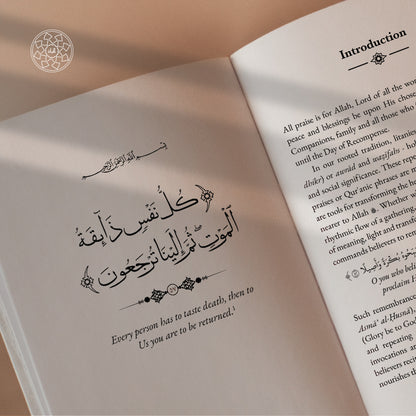 بسم الله الرحمن الرحيم
﴿كُلُّ نَفْسٍ ذَآئِقَةُ
ٱلْمَوْتِ ۖ ثُمَّ إِلَيْنَا تُرْجَعُونَ﴾
Every person has to taste death, then to
Us you are to be returned.¹
Introduction
All praise is for Allah, Lord of all the wor
peace and blessings be upon His chose
Companions, family and all those who
until the Day of Recompense.
In our rooted tradition, litera
dhikr) or awrād and waẓīfahs - hol
and social significance. These red
praises or Qur'anic phrases are m
are tools for transforming the
nearer to Allah ﷻ. Whether w
rhythmic flow of a gathering,
of meaning, light and transfor
commands believers to remem
بُكْرَةً وَأَصِيلًا
O you who bel
proclaim H
Such remembran
Asmā' al-Ḥusnā),
(Glory be to God
and repeating
invocations ar
believers recit
nourishes th